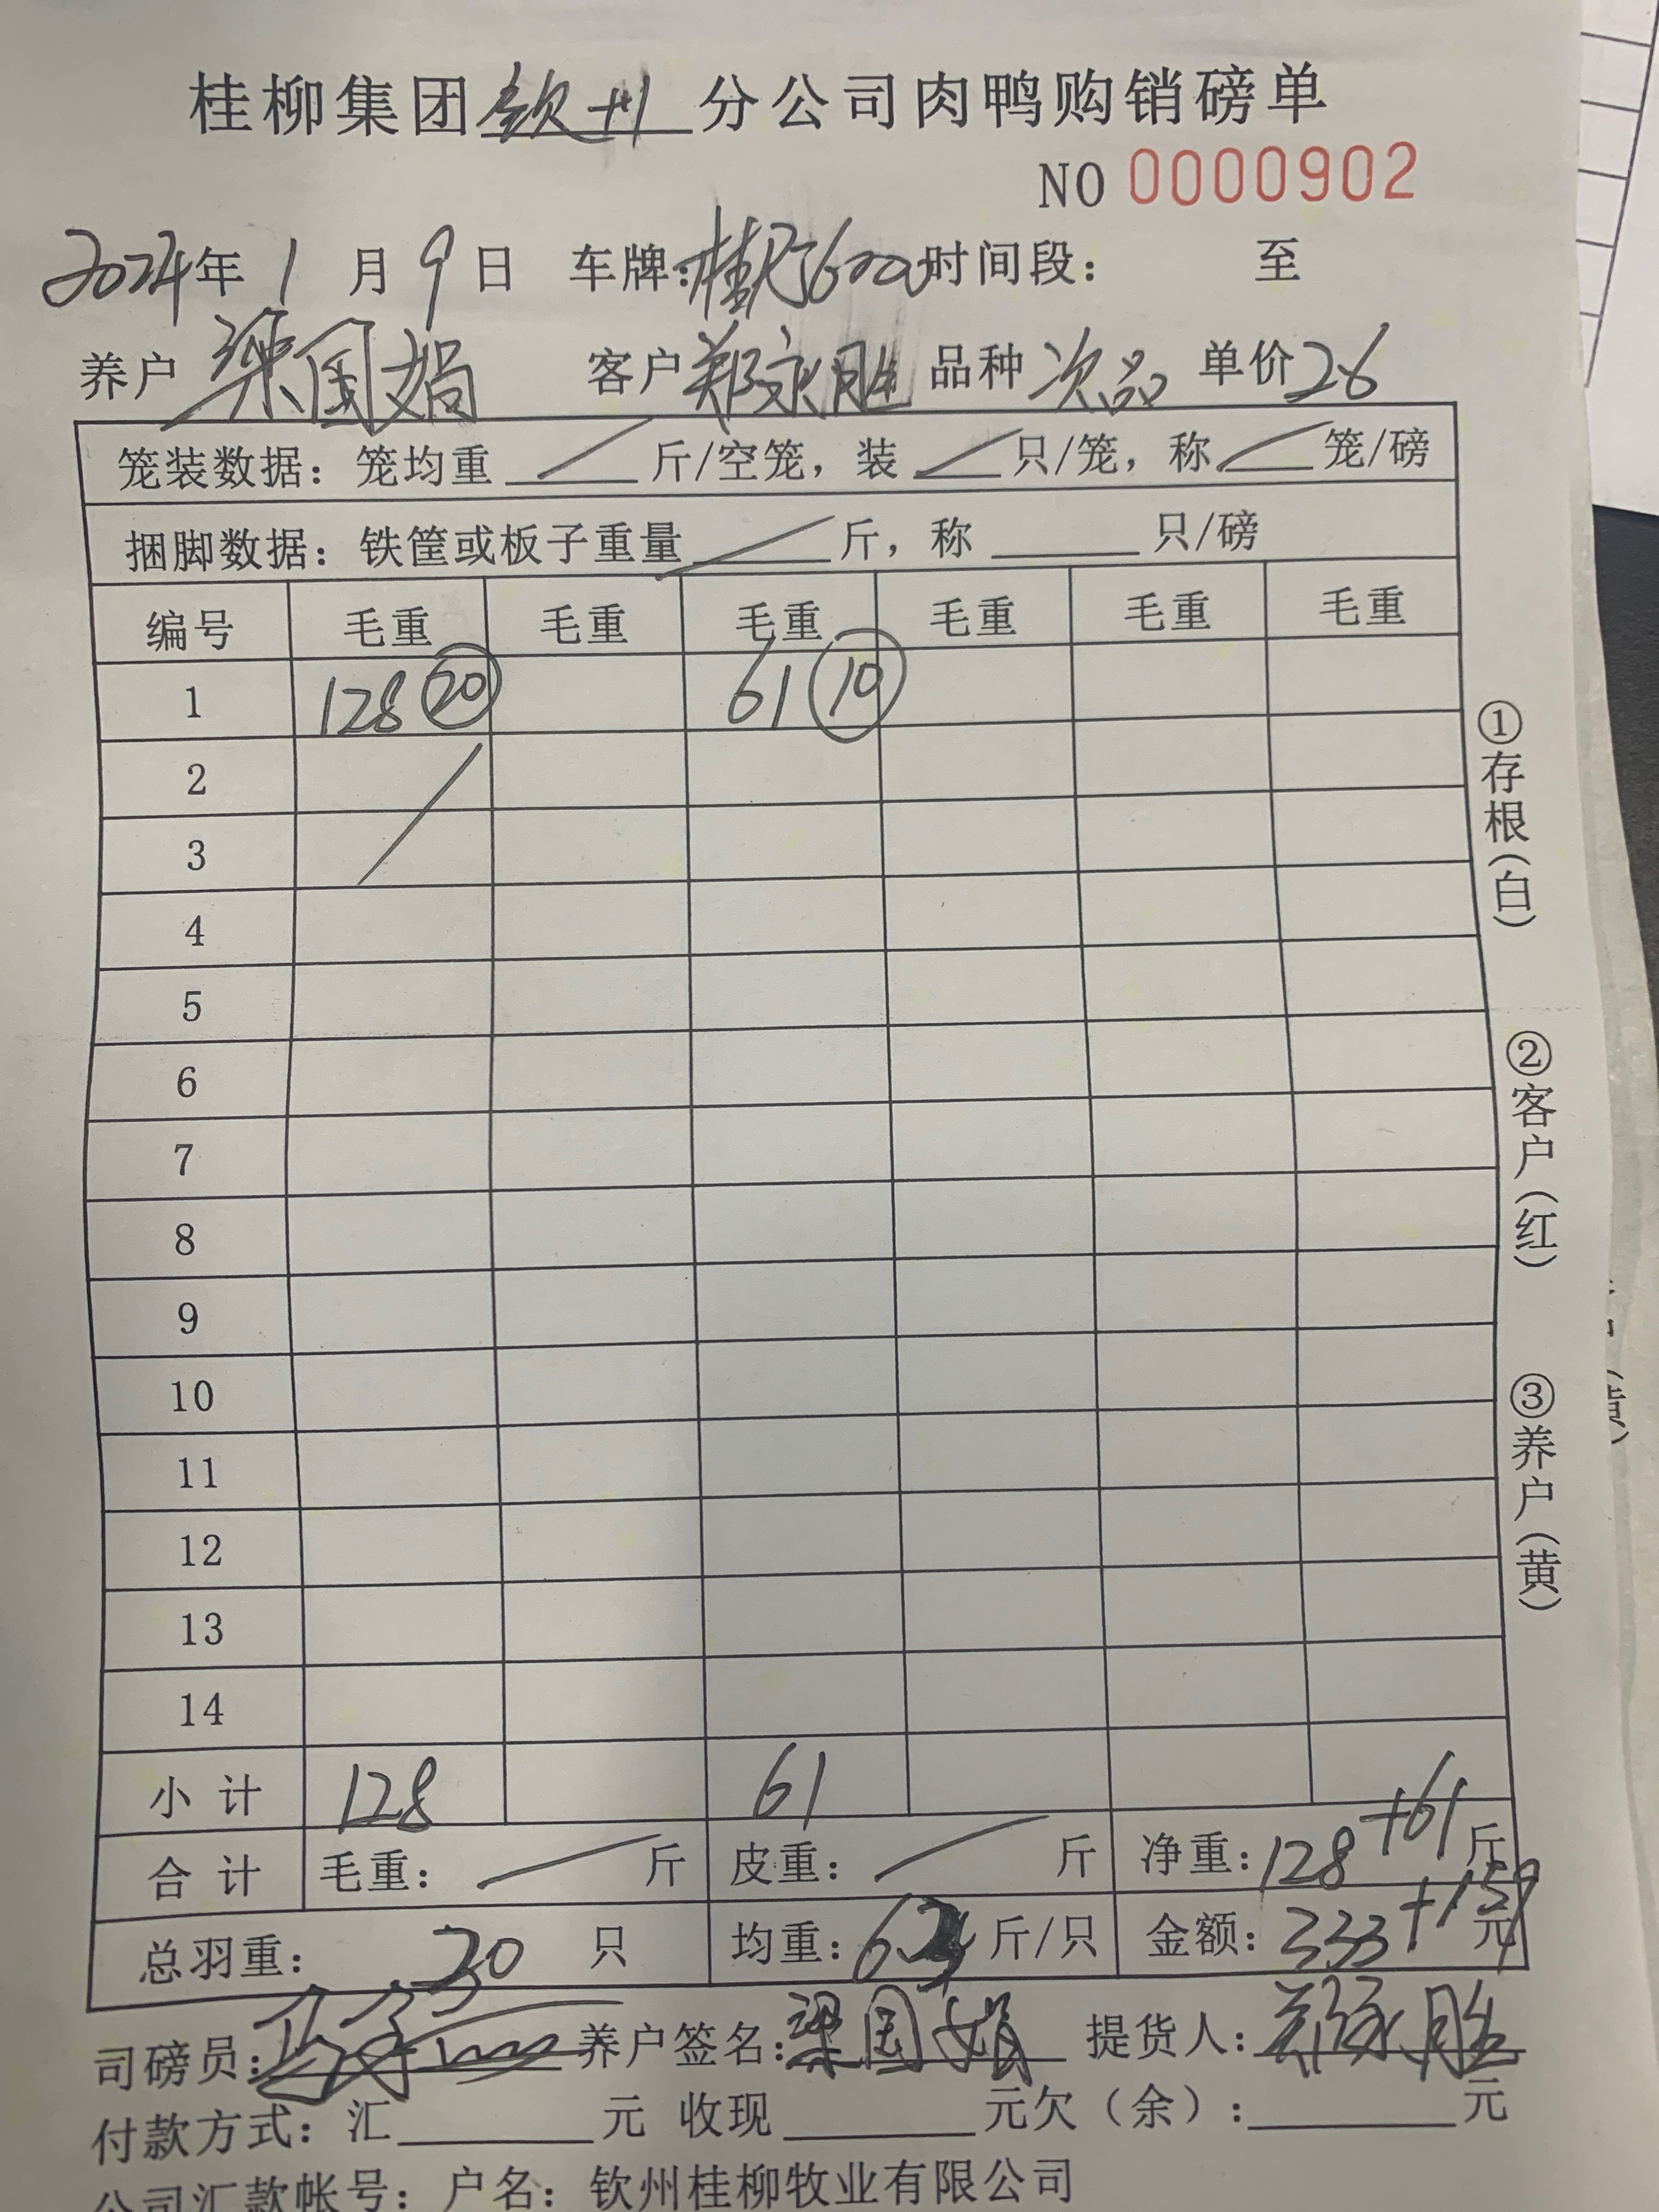 桂柳集团钦州分公司肉鸭购销磅单
NO 0000902
2024年1月9日 车牌: 时间段: 至
养户 梁国娟 客户 郑永胜 品种 次品 单价 26
笼装数据: 笼均重 斤/空笼, 装 只/笼, 称 笼/磅
捆脚数据: 铁筐或板子重量 斤, 称 只/磅
编号 毛重 毛重 毛重 毛重 毛重 毛重
1 128 20 61 10
2
3
4
5
6
7
8
9
10
11
12
13
14
小计 128 61
合计 毛重: 斤 皮重: 斤 净重: 128+61 斤
总羽重: 30 只 均重: 斤/只 金额: 333+159 元
司磅员: 养户签名: 梁国娟 提货人: 郑永胜
付款方式: 汇 元 收现 元欠（余）: 元
公司汇款帐号: 户名: 钦州桂柳牧业有限公司
①存根(白)
②客户(红)
③养户(黄)
(黄)